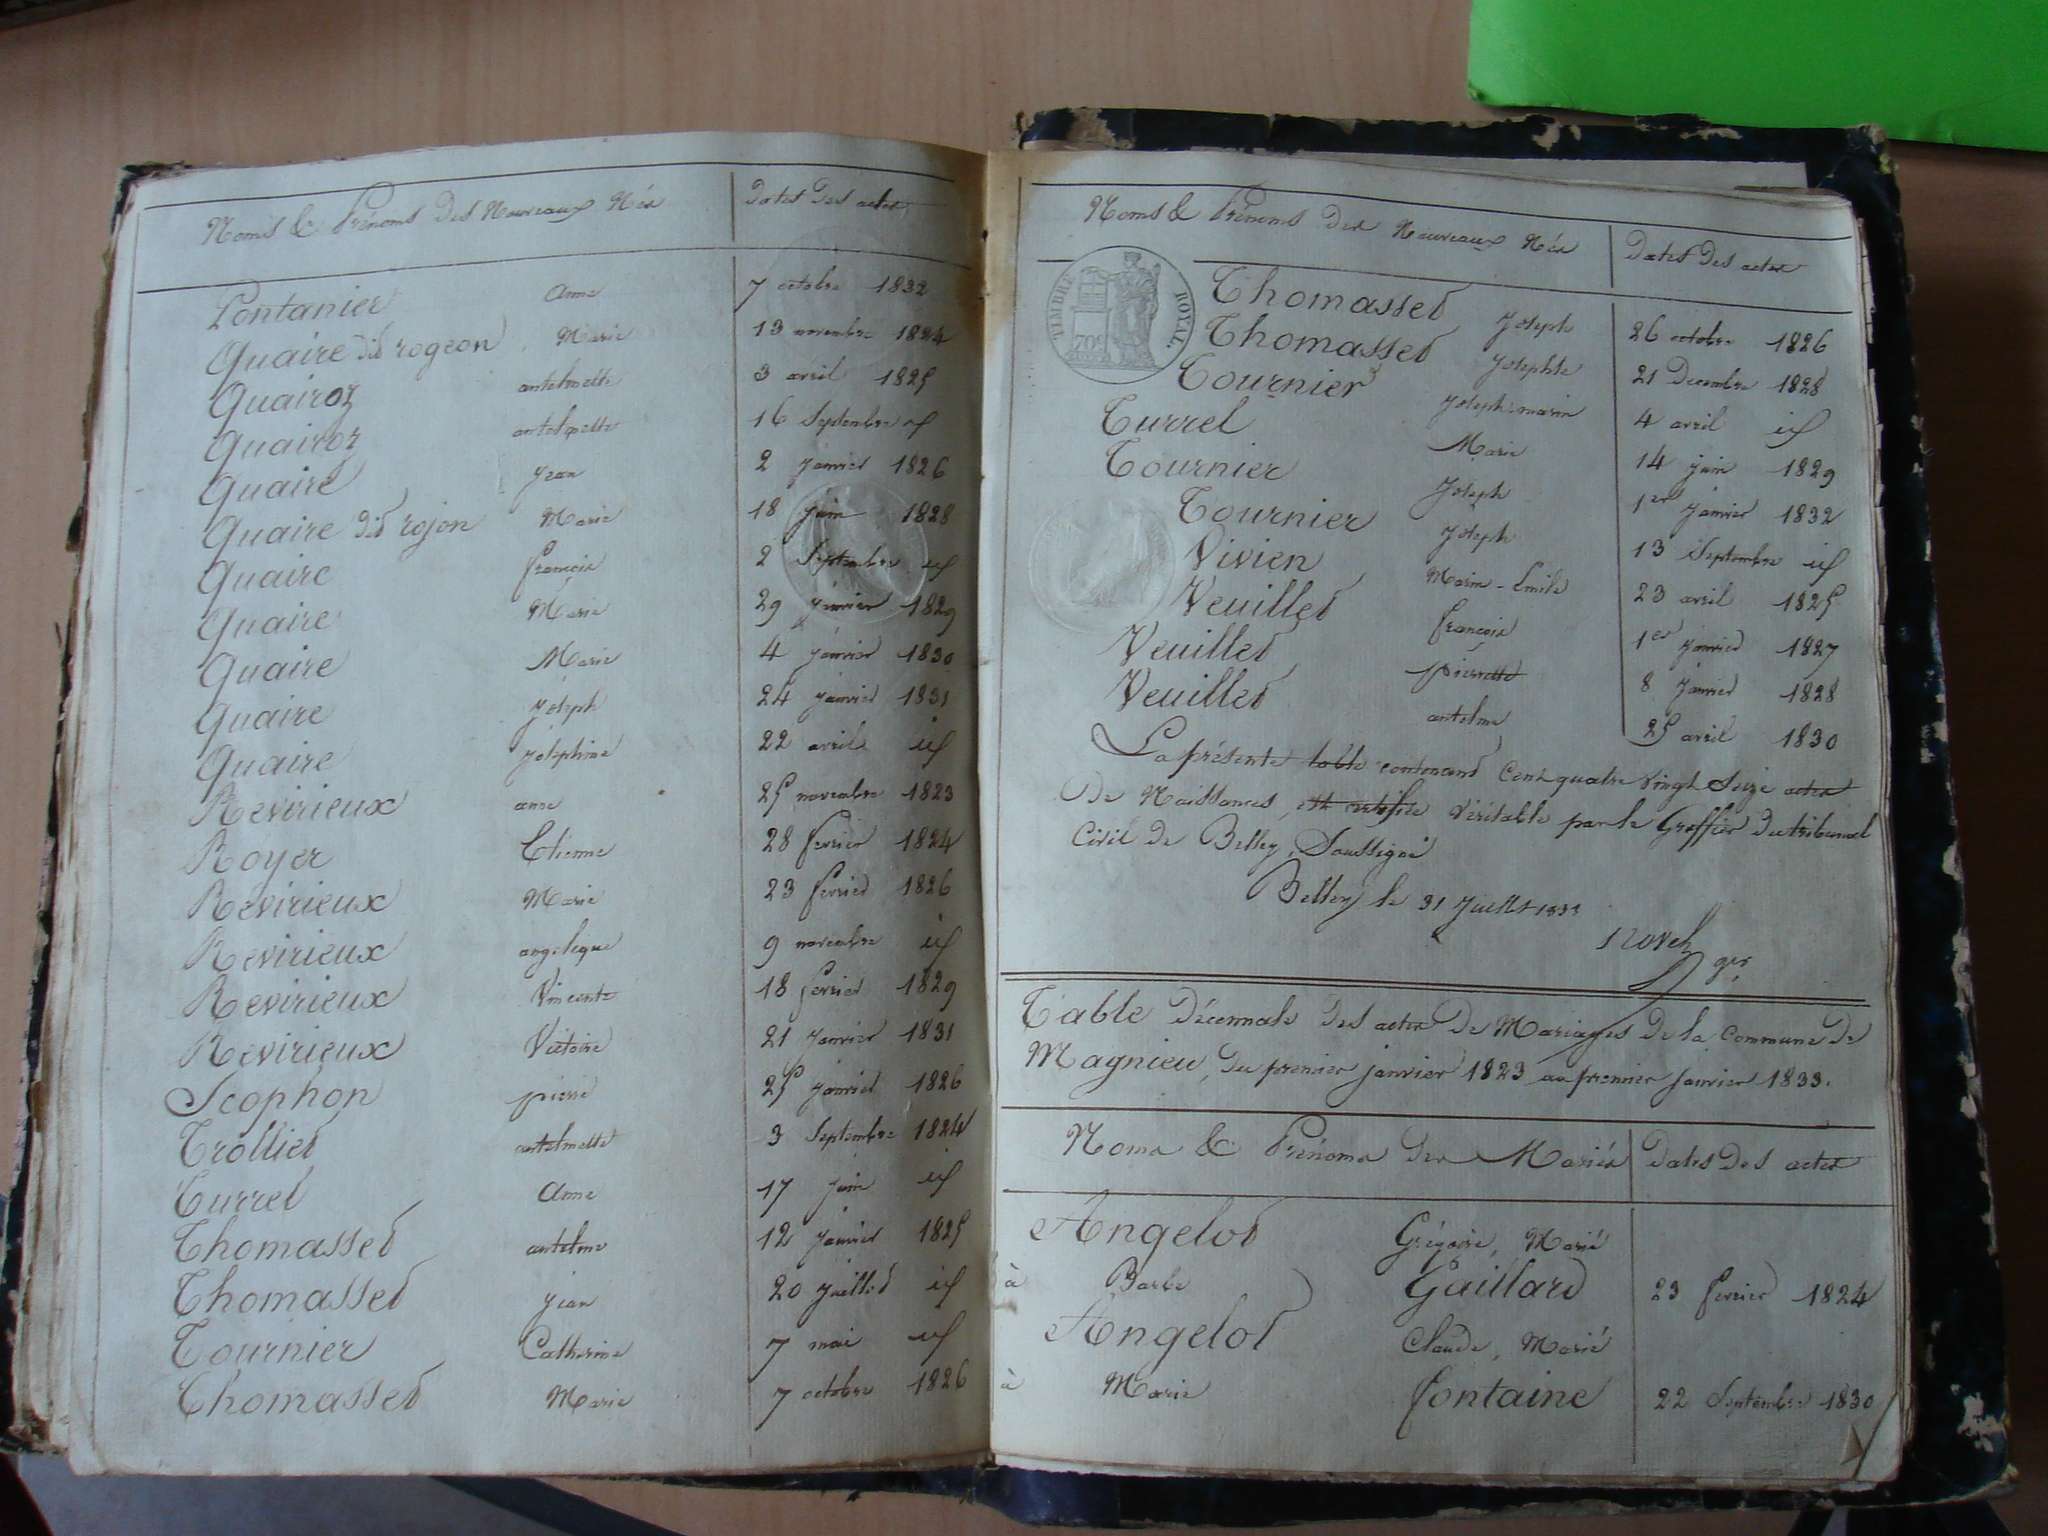 Noms & Prénoms Des Nouveaux Nés Dates Des actes
Pontanier Anne 7 octobre 1832
Quaire dit rogeon Marie 13 novembre 1824
Quairoz antelmette 3 avril 1825
Quairoz antelmette 16 Septembre id
Quaire Jean 2 janvier 1826
Quaire dit rojon Marie 18 juin 1828
Quaire françois 2 Septembre id
Quaire Marie 29 janvier 1829
Quaire Marie 4 janvier 1830
Quaire Joseph 24 janvier 1831
Quaire Joséphine 22 avril id
Revirieux anne 25 novembre 1823
Royer Etienne 28 fevrier 1824
Revirieux Marie 23 fevrier 1826
Revirieux angelique 9 novembre id
Revirieux Vincente 18 fevrier 1829
Revirieux Victoire 21 janvier 1831
Scophon pierre 25 janvier 1826
Trolliet antelmette 3 Septembre 1824
Turrel Anne 17 juin id
Thomasset antelme 12 janvier 1825
Thomasset Jean 20 Juillet id
Tournier Catherine 7 mai id
Thomasset Marie 7 octobre 1826
Noms & Prénoms Des Nouveaux Nés Dates Des actes
TIMBRE ROYAL
70c
Thomasset Joseph 26 octobre 1826
Thomasset Josephte 21 Decembre 1828
Tournier Joseph-marin 4 avril id
Turrel Marie 14 juin 1829
Tournier Joseph 1er janvier 1832
Tournier Joseph 13 Septembre id
Vivien Marin-Emile 23 avril 1825
Veuillet françois 1er janvier 1827
Veuillet pierrette 8 janvier 1828
Veuillet antelme 25 avril 1830
La présente table contenant Cent quatre vingt Seize actes
De Naissances, est certifiée Véritable par le Greffier du tribunal
Civil De Belley, Soussigné
Belley le 31 Juillet
ger
Table Décennale des actes De Mariages De la Commune De
Magnieu, Du premier janvier 1823 au premier janvier 1833.
Noms & Prénoms Des Mariés Dates Des actes
Angelot Grégoire, Marié
à Barbe Gaillard 23 fevrier 1824
Angelot Claude, Marié
à Marie fontaine 22 Septembre 1830